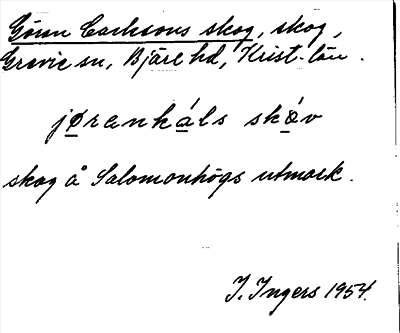 Göran Carlssons skog, skog,
Grevie sn, Bjäre hd, Krist. län.
jøranká̱ls skø̱v
skog å Salomonhögs utmark.
I. Ingers 1954.